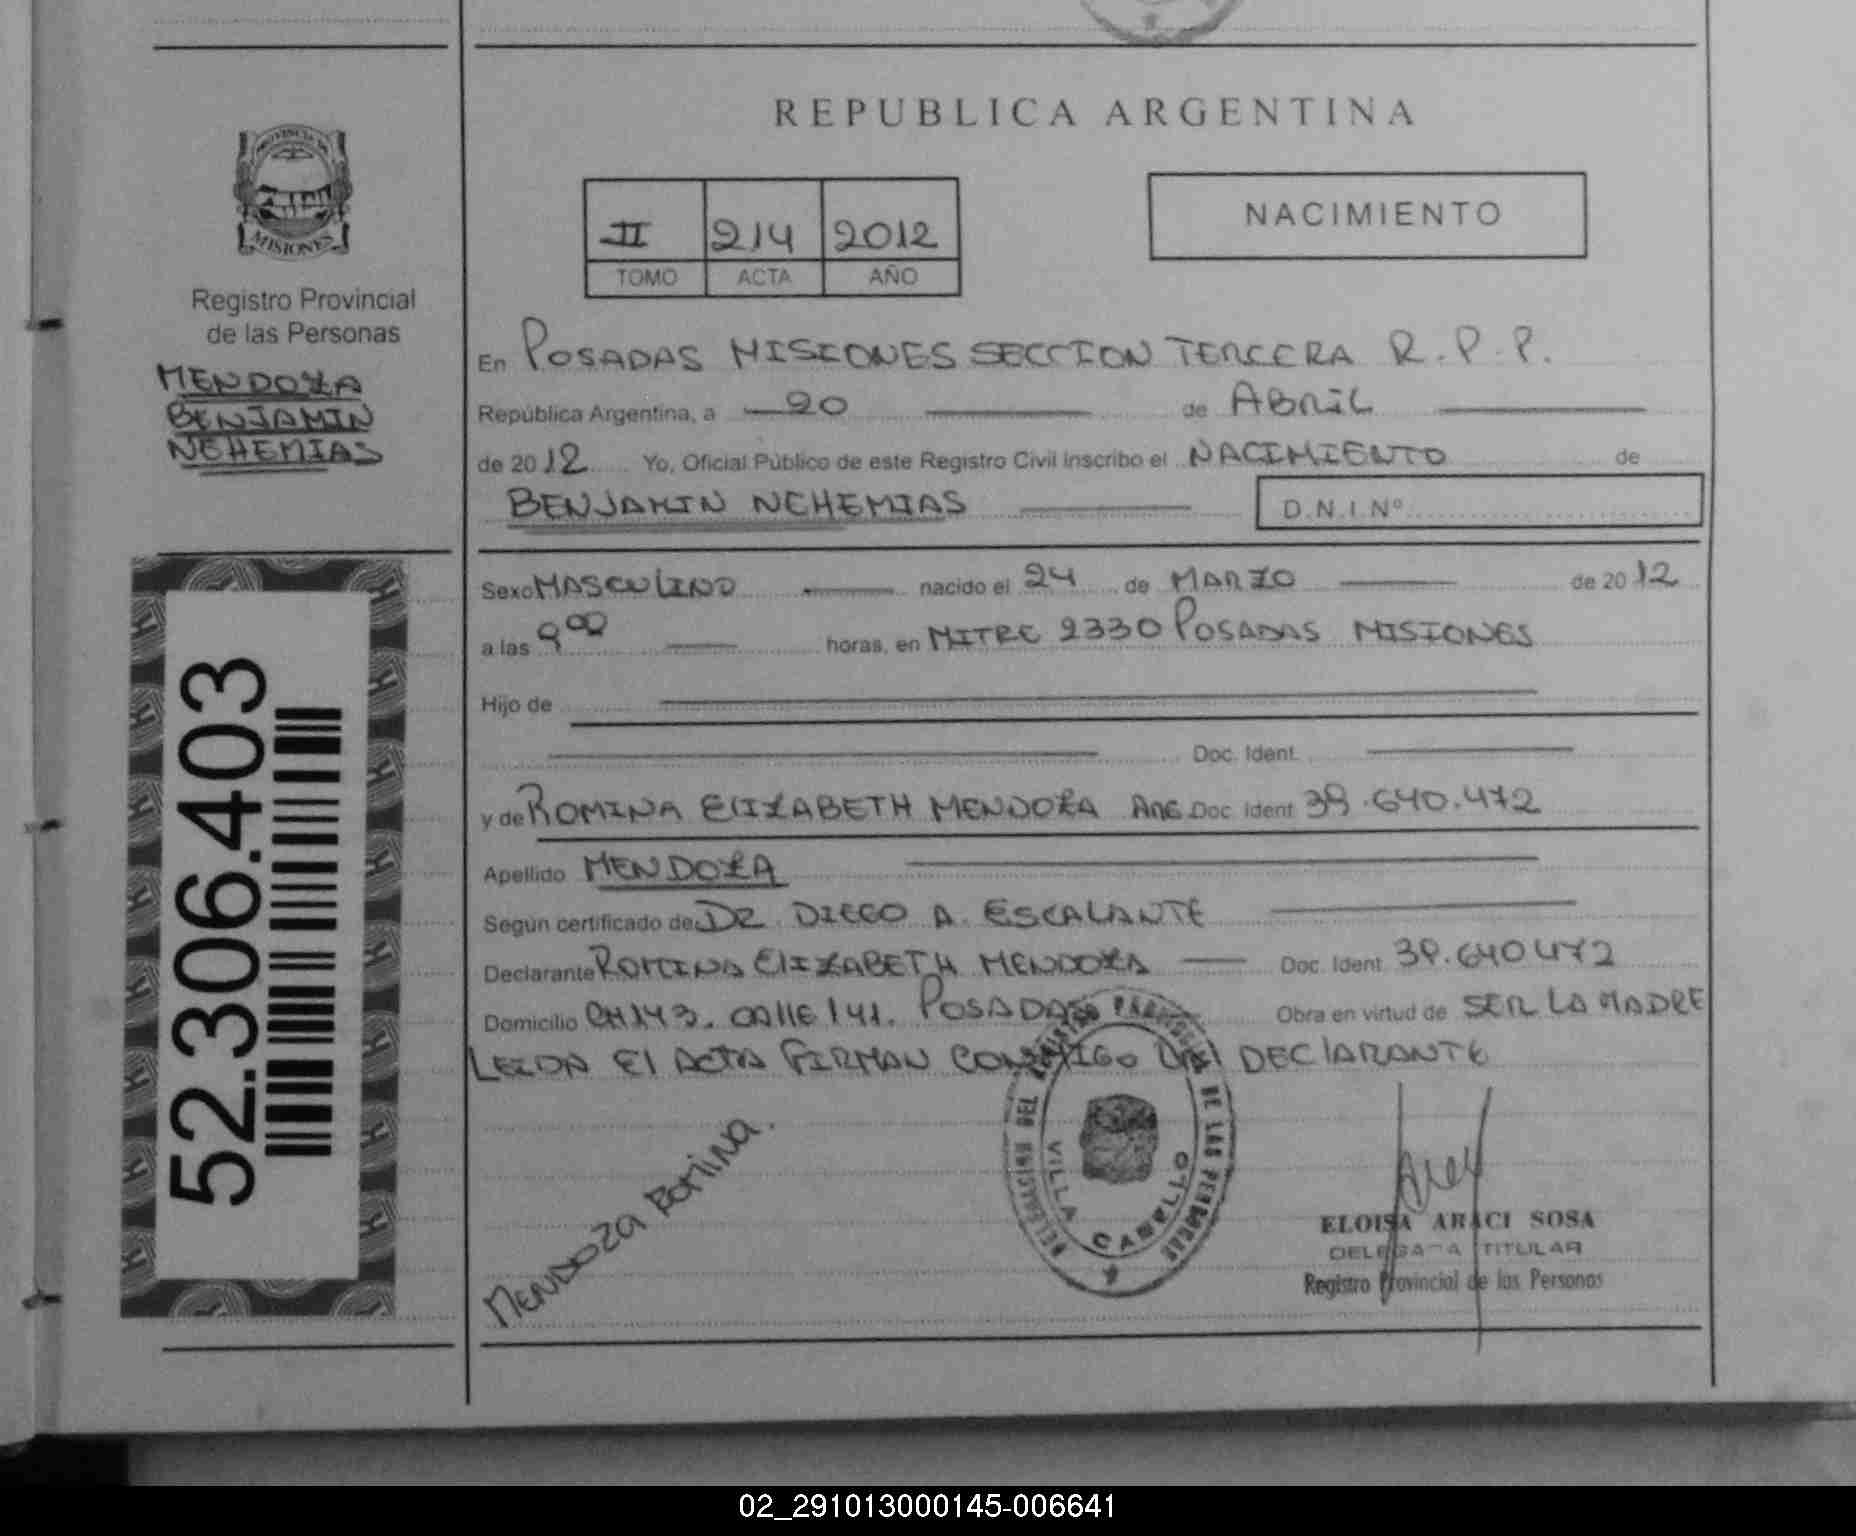 REPUBLICA ARGENTINA
MISIONES
Registro Provincial
de las Personas
MENDOZA
BENJAMIN
NEHEMIAS
52.306.403
II 214 2012
TOMO ACTA AÑO
NACIMIENTO
En POSADAS MISIONES SECCION TERCERA R.P.P.
República Argentina, a 20 de ABRIL
de 2012 Yo, Oficial Público de este Registro Civil inscribo el NACIMIENTO de
BENJAMIN NEHEMIAS D.N.I Nº
Sexo MASCULINO nacido el 24 de MARZO de 2012
a las 9 00 horas, en MITRE 2330 POSADAS MISIONES
Hijo de
Doc. Ident.
y de ROMINA ELIZABETH MENDOZA ARG. Doc. Ident 39.640.472
Apellido MENDOZA
Según certificado de DR DIEGO A. ESCALANTE
Declarante ROMINA ELIZABETH MENDOZA Doc. Ident. 39.640472
Domicilio CH143. CALLE 141. POSADAS Obra en virtud de SER LA MADRE
LEIDA El ACTA FIRMAN CONMIGO DEClARANTE
MENDOZA ROMINA.
DELEGACION DEL REGISTRO PROVINCIAL DE LAS PERSONAS
VILLA CABELLO
ELOISA ARACI SOSA
DELEGADA TITULAR
Registro Provincial de las Personas
02_291013000145-006641